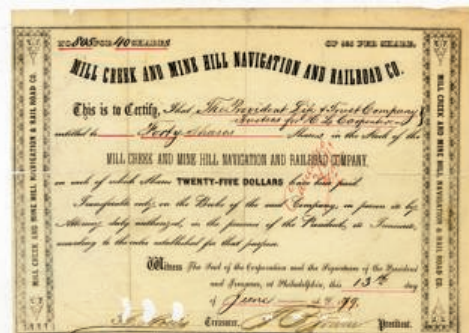 No. 805 FOR 40 SHARES OF $25 PER SHARE.
MILL CREEK AND MINE HILL NAVIGATION AND RAILROAD CO.
This is to Certify, That The Provident Life & Trust Company
entitled to Forty Shares Shares in the Stock of the
MILL CREEK AND MINE HILL NAVIGATION AND RAILROAD COMPANY,
on each of which Shares TWENTY-FIVE DOLLARS have been paid
Transferable only on the Books of the said Company, in person or by
Attorney duly authorized, in the presence of the President, or Treasurer,
according to the rules established for that purpose.
Witness The Seal of the Corporation and the Signature of the President
and Treasurer, at Philadelphia, this 13th day
of June 1899.
Treasurer. President.
MILL CREEK AND MINE HILL NAVIGATION & RAIL ROAD CO.
MILL CREEK AND MINE HILL NAVIGATION & RAIL ROAD CO.